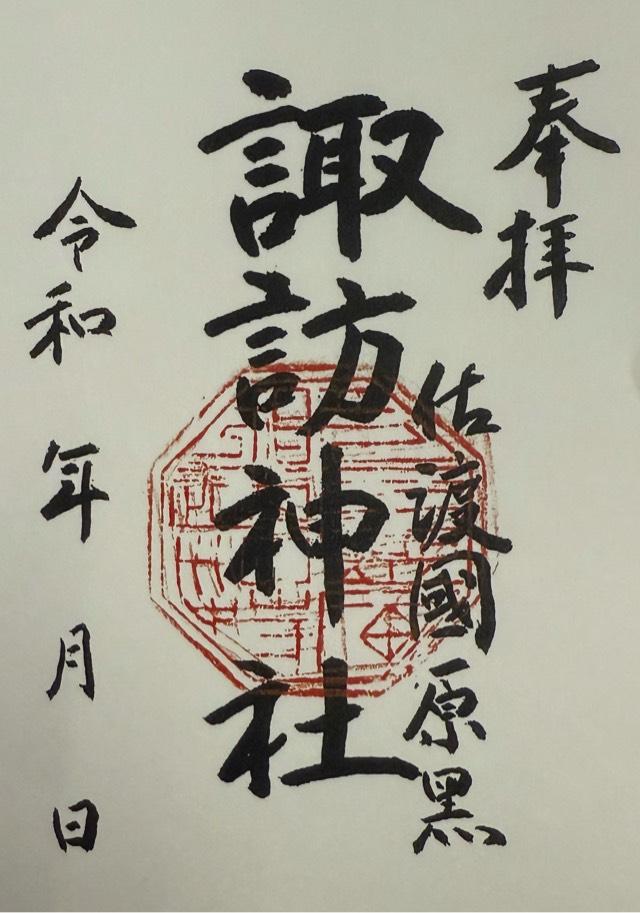 奉拝
佐渡國原黒
諏訪神社
令和 年 月 日